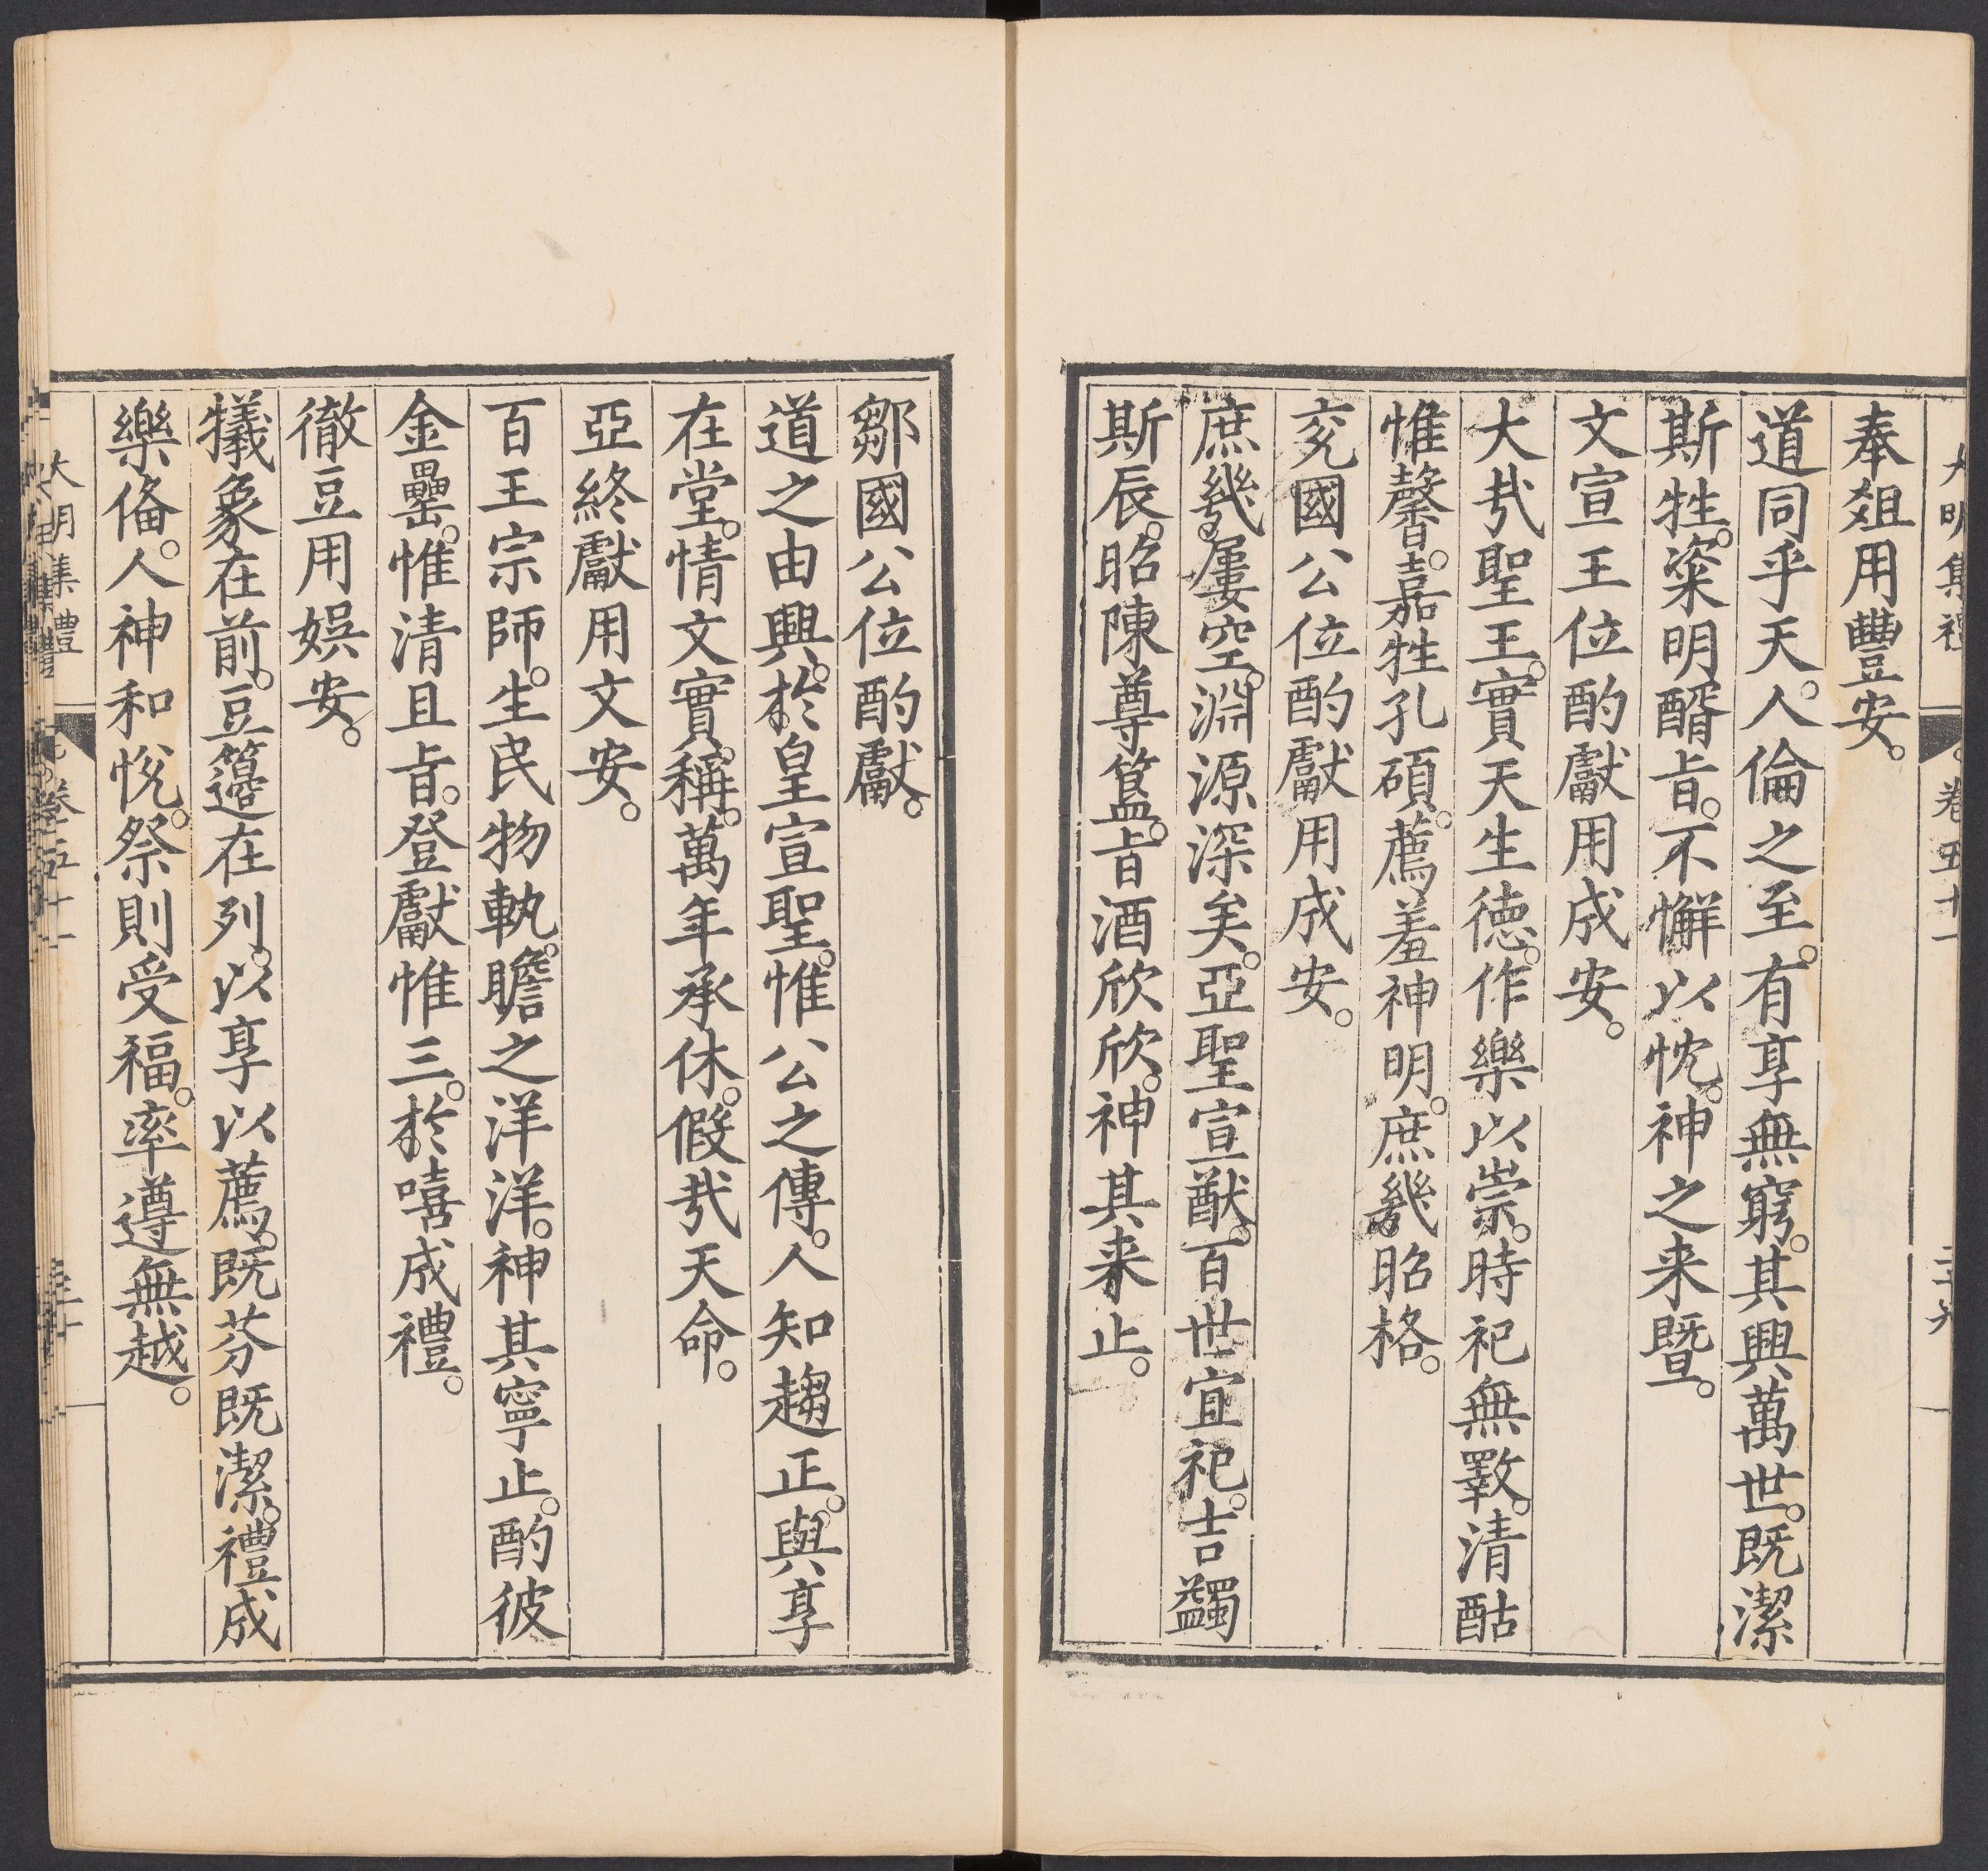 大明集禮
卷五十一
二十九
奉爼用豐安。
道同乎天。人倫之至。有享無窮。其興萬世。既潔
斯牲。粢明醑㫖。不懈以忱。神之来曁。
文宣王位酌獻用成安。
大㢤聖王。實天生德。作樂以崇。時祀無斁。清酤
惟馨。嘉牲孔碩。薦羞神明。庶幾昭格。
兖國公位酌獻用成安。
庶幾屢空。淵源深矣。亞聖宣猷。百世宜祀。吉蠲
斯辰。昭陳尊簋。㫖酒欣欣。神其来止。
鄒國公位酌獻。
道之由興。於皇宣聖。惟公之傳。人知趨正。與享
在堂。情文實稱。萬年承休。假㢤天命。
亞終獻用文安。
百王宗師。生民物軌。瞻之洋洋。神其寧止。酌彼
金罍。惟清且㫖。登獻惟三。於嘻成禮。
徹豆用娯安。
犧象在前。豆籩在列。以享以薦。既芬既潔。禮成
樂俻。人神和悅。祭則受福。率遵無越。
大明集禮
卷五十一
三十